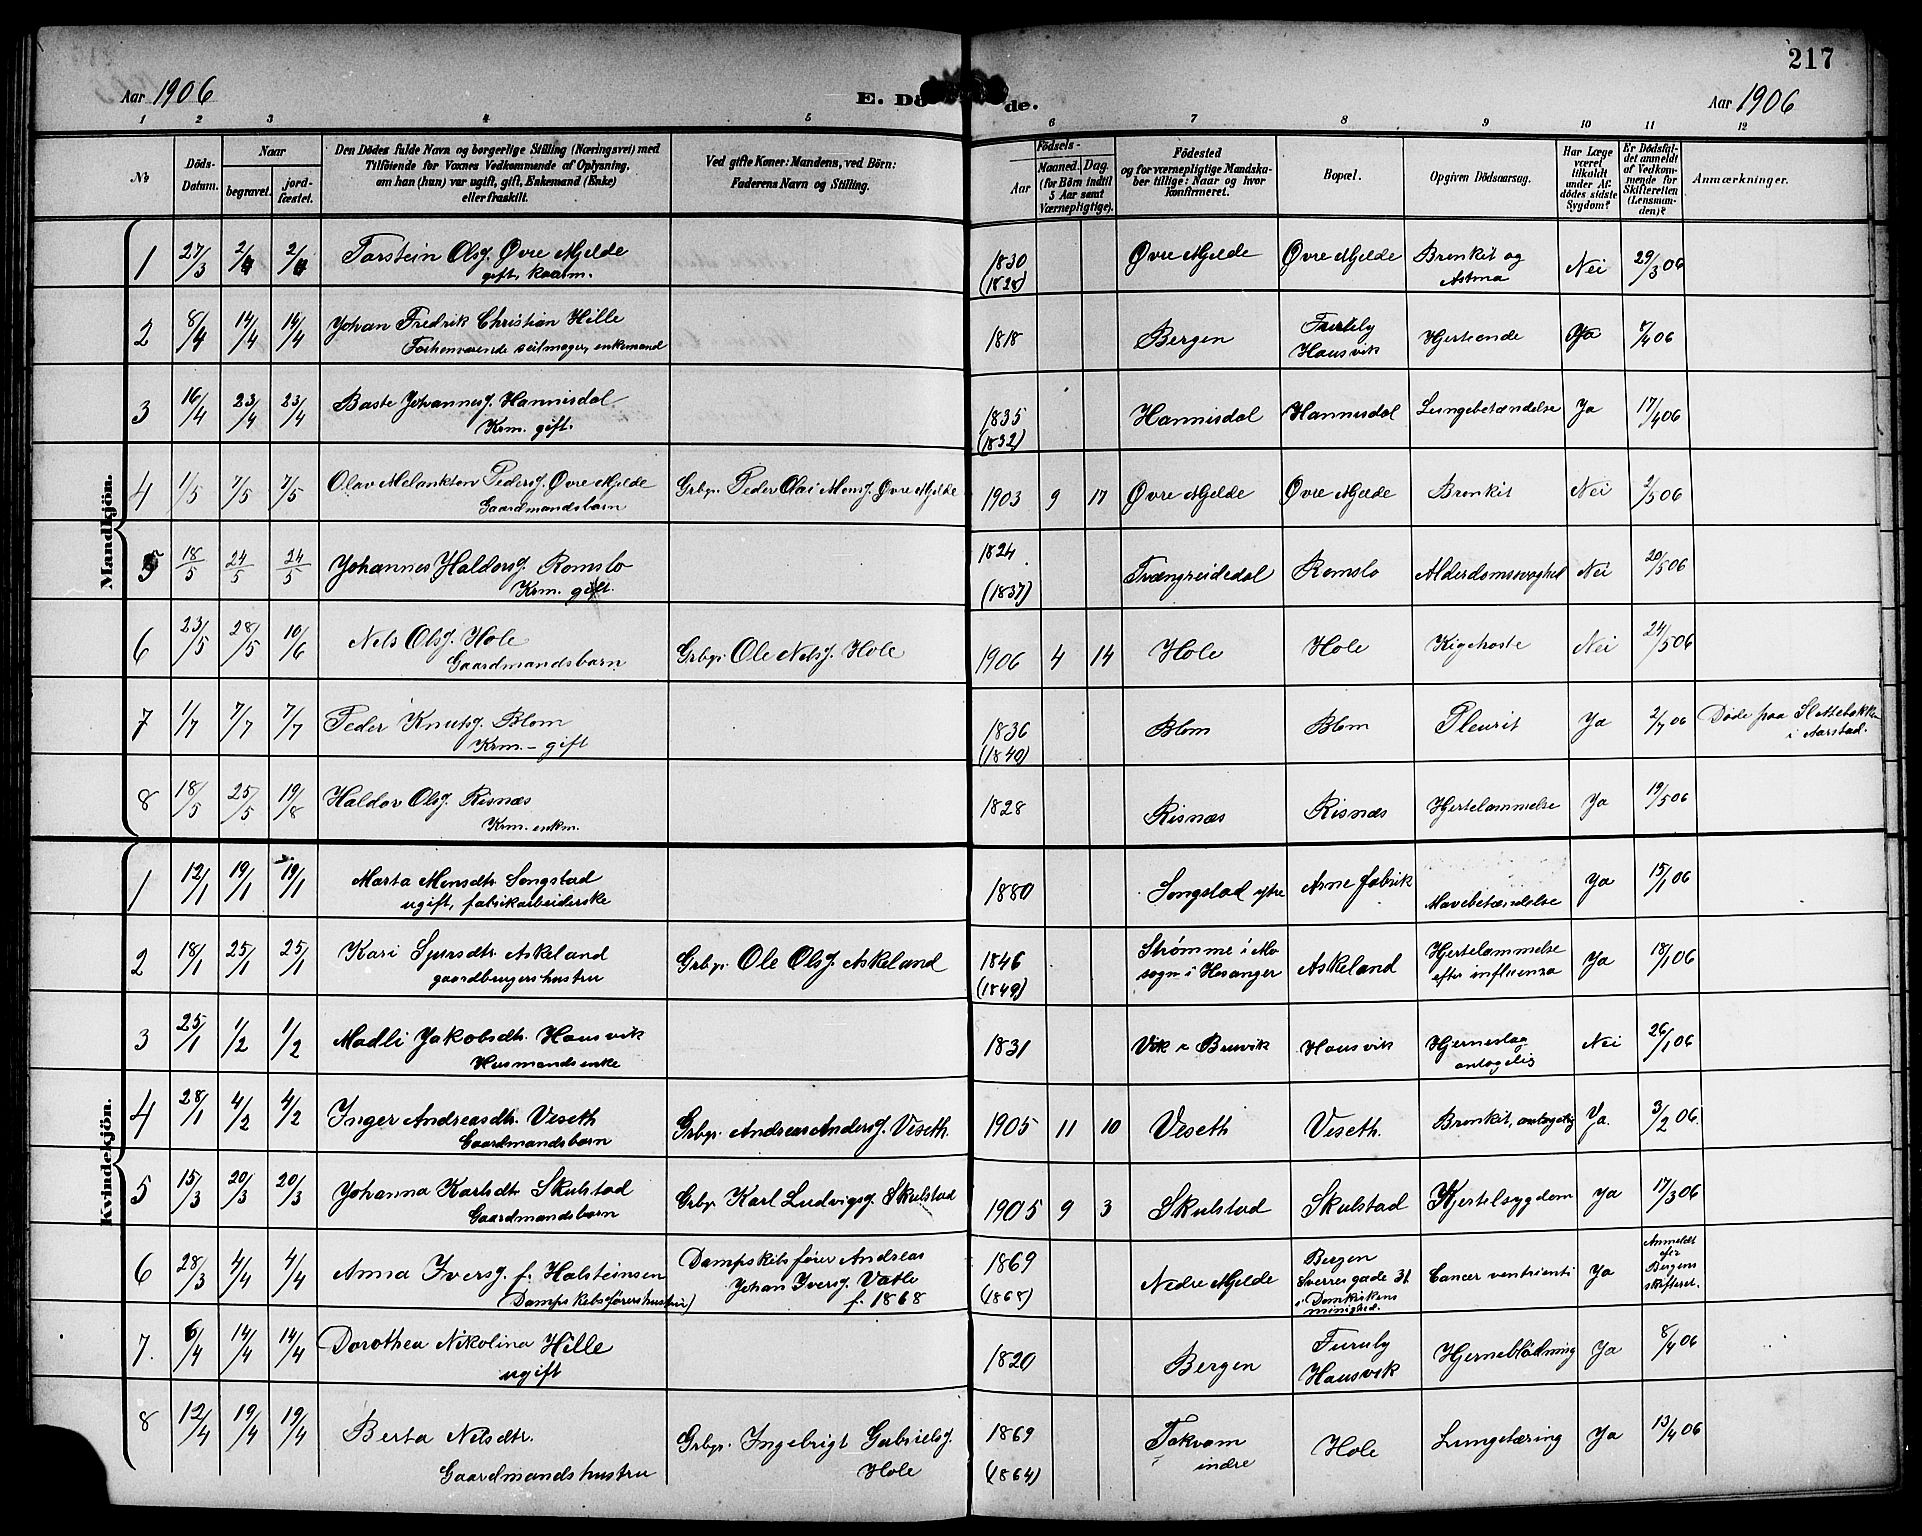 217
Aar 1906 E. Dö de. Aar 1906
1 2 3 4 5 6 7 8 9 10 11 12
№ Döds-Datum. Naar begravet. jord-fæstet. Den Dödes fulde Navn og borgerlige Stilling (Næringsvei) med Tilföiende for Voxnes Vedkommende af Oplysning, om han (hun) var ugift, gift, Enkemand (Enke) eller fraskilt. Ved gifte Koner: Mandens, ved Börn: Faderens Navn og Stilling. Födsels- Aar Maaned. Dag. (for Börn indtil 5 Aar samt Værnepligtige). Födested og for værnepligtige Mandskaber tillige: Naar og hvor konfirmeret. Bopæl. Opgiven Dödsaarsag. Har Læge været tilkaldt under Afdödes sidste Sygdom? Er Dödsfaldet anmeldt af Vedkommende for Skifteretten (Lensmanden)? Anmærkninger.
Mandkjön.
1 27/3 2/4 2/4 Torstein Olsf. Øvre Mjelde 1830 Øvre Mjelde Øvre Mjelde Bronkit og Nei 29/3 06
gift, kaarm. (1828) Astma
2 8/4 14/4 14/4 Johan Fredrik Christian Hille 1818 Bergen Furuly Hjerteonde Ja 9/4 06
Forhenværende seilmager, enkemand Hausvik
3 16/4 23/4 23/4 Baste Johannesf. Hannisdal 1835 Hannisdal Hannisdal Lungebetændelse Ja 17/4 06
Krm. gift. (1832)
4 1/5 7/5 7/5 Olav Melankton Pedersf. Øvre Mjelde Grbr. Peder Olai Monsf. Øvre Mjelde 1903 9 17 Øvre Mjelde Øvre Mjelde Bronkit Nei 2/5 06
Gaardmandsbarn
5 18/5 24/5 24/5 Johannes Haldorsf. Romslo 1824 Tvængreidedal Romslo Alderdomssvaghed Nei 20/5 06
Krm. gift. (1837)
6 23/5 28/5 10/6 Nels Olsf. Hole Grbr. Ole Nelsf. Hole 1906 4 14 Hole Hole Kighoste Nei 24/5 06
Gaardmandsbarn
7 1/7 7/7 7/7 Peder Knutsf. Blom 1836 Blom Blom Pleurit Ja 2/7 06 Døde paa Slettebakken
Krm. - gift (1840) i Aarstad.
8 18/5 25/5 19/8 Haldor Olsf. Risnæs 1828 Risnæs Risnæs Hjertelammelse Ja 19/5 06
Krm. enkm.
Kvindekjön.
1 12/1 19/1 19/1 Marta Monsdtr. Songstad 1880 Songstad ytre Arne fabrik Mavebetændelse Ja 15/1 06
ugift, fabrikarbeiderske
2 18/1 25/1 25/1 Kari Sjursdtr. Askeland Grbr. Ole Olsf. Askeland 1846 Strømme i Mo Askeland Hjertelammelse Ja 18/1 06
gaardbrugers hustru (1849) sogn i Hosanger efter influenza
3 25/1 1/2 1/2 Madli Jakobsdtr. Hausvik 1831 Vik i Bruvik Hausvik Hjerneslag Nei 26/1 06
Husmandsenke antagelig
4 28/1 4/2 4/2 Inger Andreasdtr. Veseth Grbr. Andreas Andersf. Veseth. 1905 11 10 Veseth Veseth. Bronkit, antagelig Ja. 3/2 06.
Gaardmandsbarn
5 15/3 20/3 20/3 Johanna Karlsdtr. Skulstad Grbr. Karl Ludvigsf. Skulstad 1905 9 3 Skulstad Skulstad Kjertelsygdom Ja 17/3 06
Gaardmandsbarn
6 28/3 4/4 4/4 Anna Iversf. f. Halsteinsen Dampskibsfører Andreas 1869 Nedre Mjelde Bergen Cancer ventrienti Ja Anmeldt
(Dampskibsførers hustru) Johan Iversf. Vatle (1868) Sverresgade 31 for
f. 1868 i Domkirkens Bergens
menighed. skifteret.
7. 6/4 14/4 14/4 Dorothea Nikolina Hille 1820 Bergen Furuly Hjerneblødning Ja 8/4 06
ugift Hausvik
8 12/4 19/4 19/4 Berta Nelsdtr. Grbr. Ingebrigt Gabrielsf. 1869 Takvam Hole Lungetæring Ja 13/4 06
Gaardmandshustru Hole (1864) indre